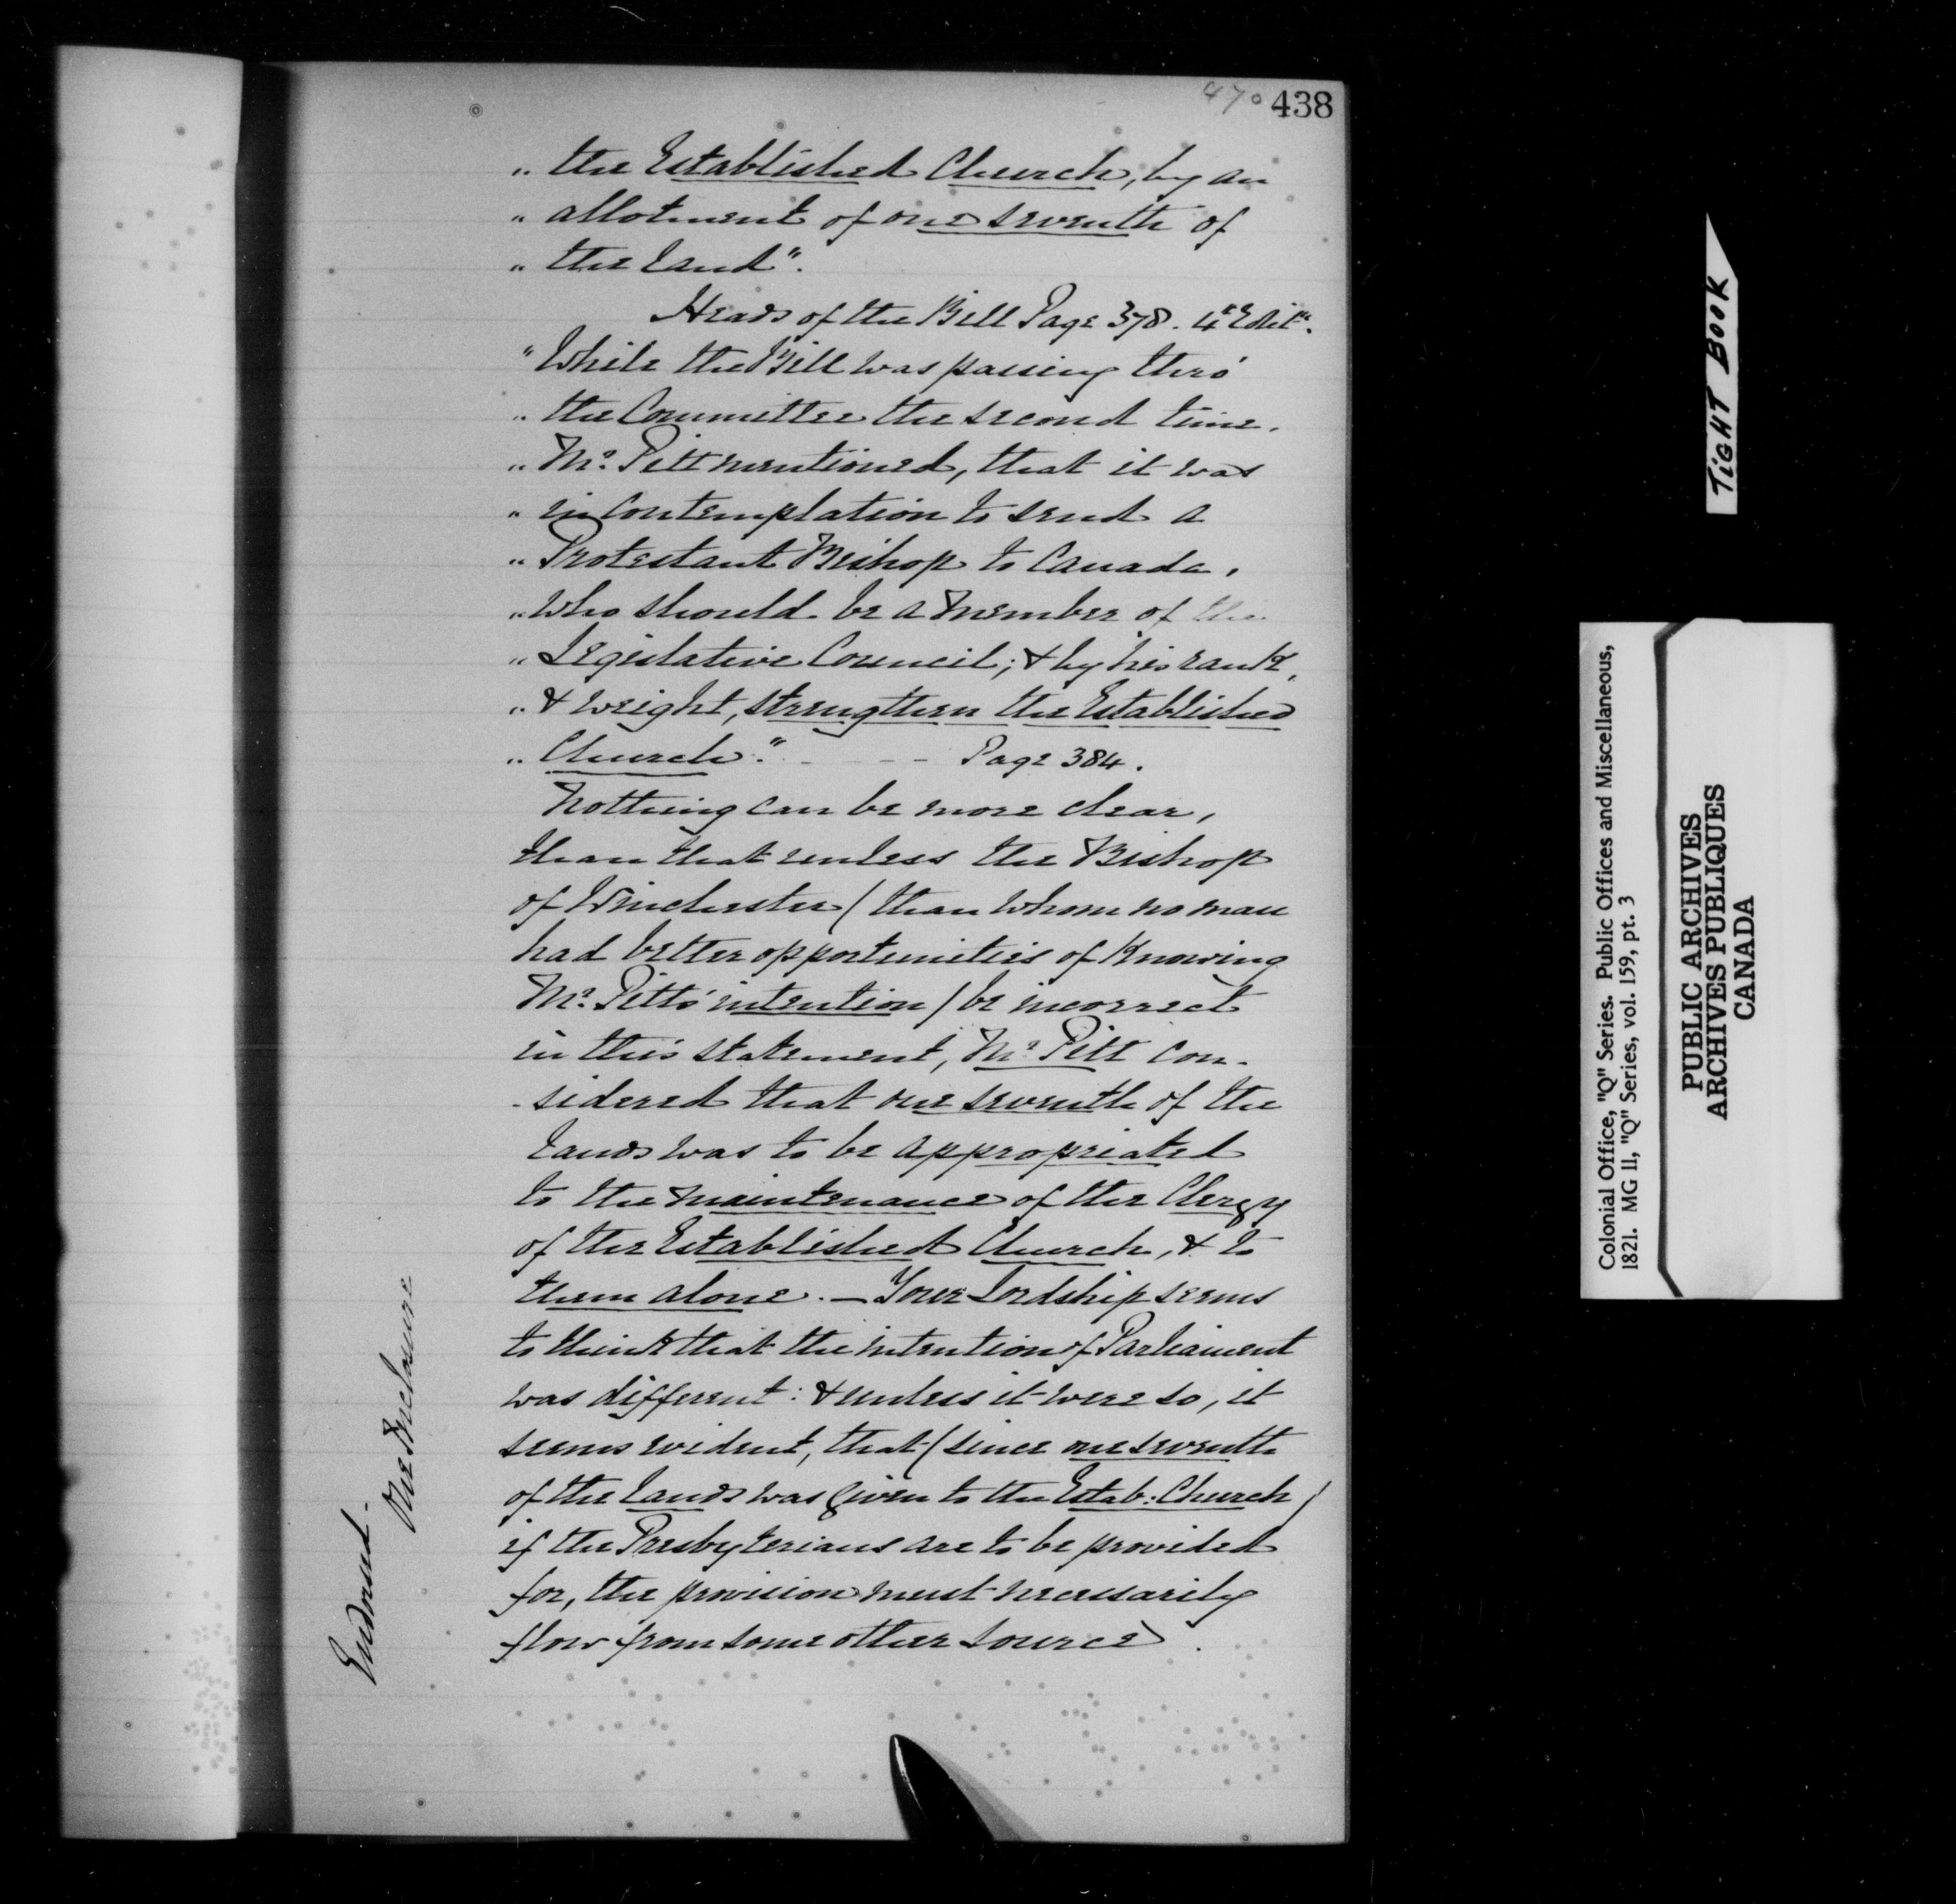 470 438
" the Established Church, by an
" allotment of one seventh of
" the land".
Heads of the Bill Page 378. 4th Editn.
"While the Bill was passing thro'
" the Committee the second time,
" Mr. Pitt mentioned, that it was
" in contemplation to send a
" Protestant Bishop to Canada,
" who should be a member of the
" Legislative Council; & by his rank,
" & weight, strengthen the Established
" Church." - - - Page 384.
Nothing can be more clear,
than that unless the Bishop
of Winchester (than whom no man
had better opportunities of knowing
Mr. Pitts' intention) be incorrect
in this statement, Mr. Pitt con-
-sidered that one seventh of the
lands was to be appropriated
to the maintenance of the Clergy
of the Established Church, & to
them alone. — Your Lordship seems
to think that the intention of Parliament
was different: & unless it were so, it
seems evident, that (since one seventh
of the lands was given to the Estab: Church)
if the Presbyterians are to be provided
for, the provision must necessarily
flow from some other source.
Endorsed -
One Inclosure
TIGHT BOOK
Colonial Office, "Q" Series. Public Offices and Miscellaneous,
1821. MG 11, "Q" Series, vol. 159, pt. 3
PUBLIC ARCHIVES
ARCHIVES PUBLIQUES
CANADA